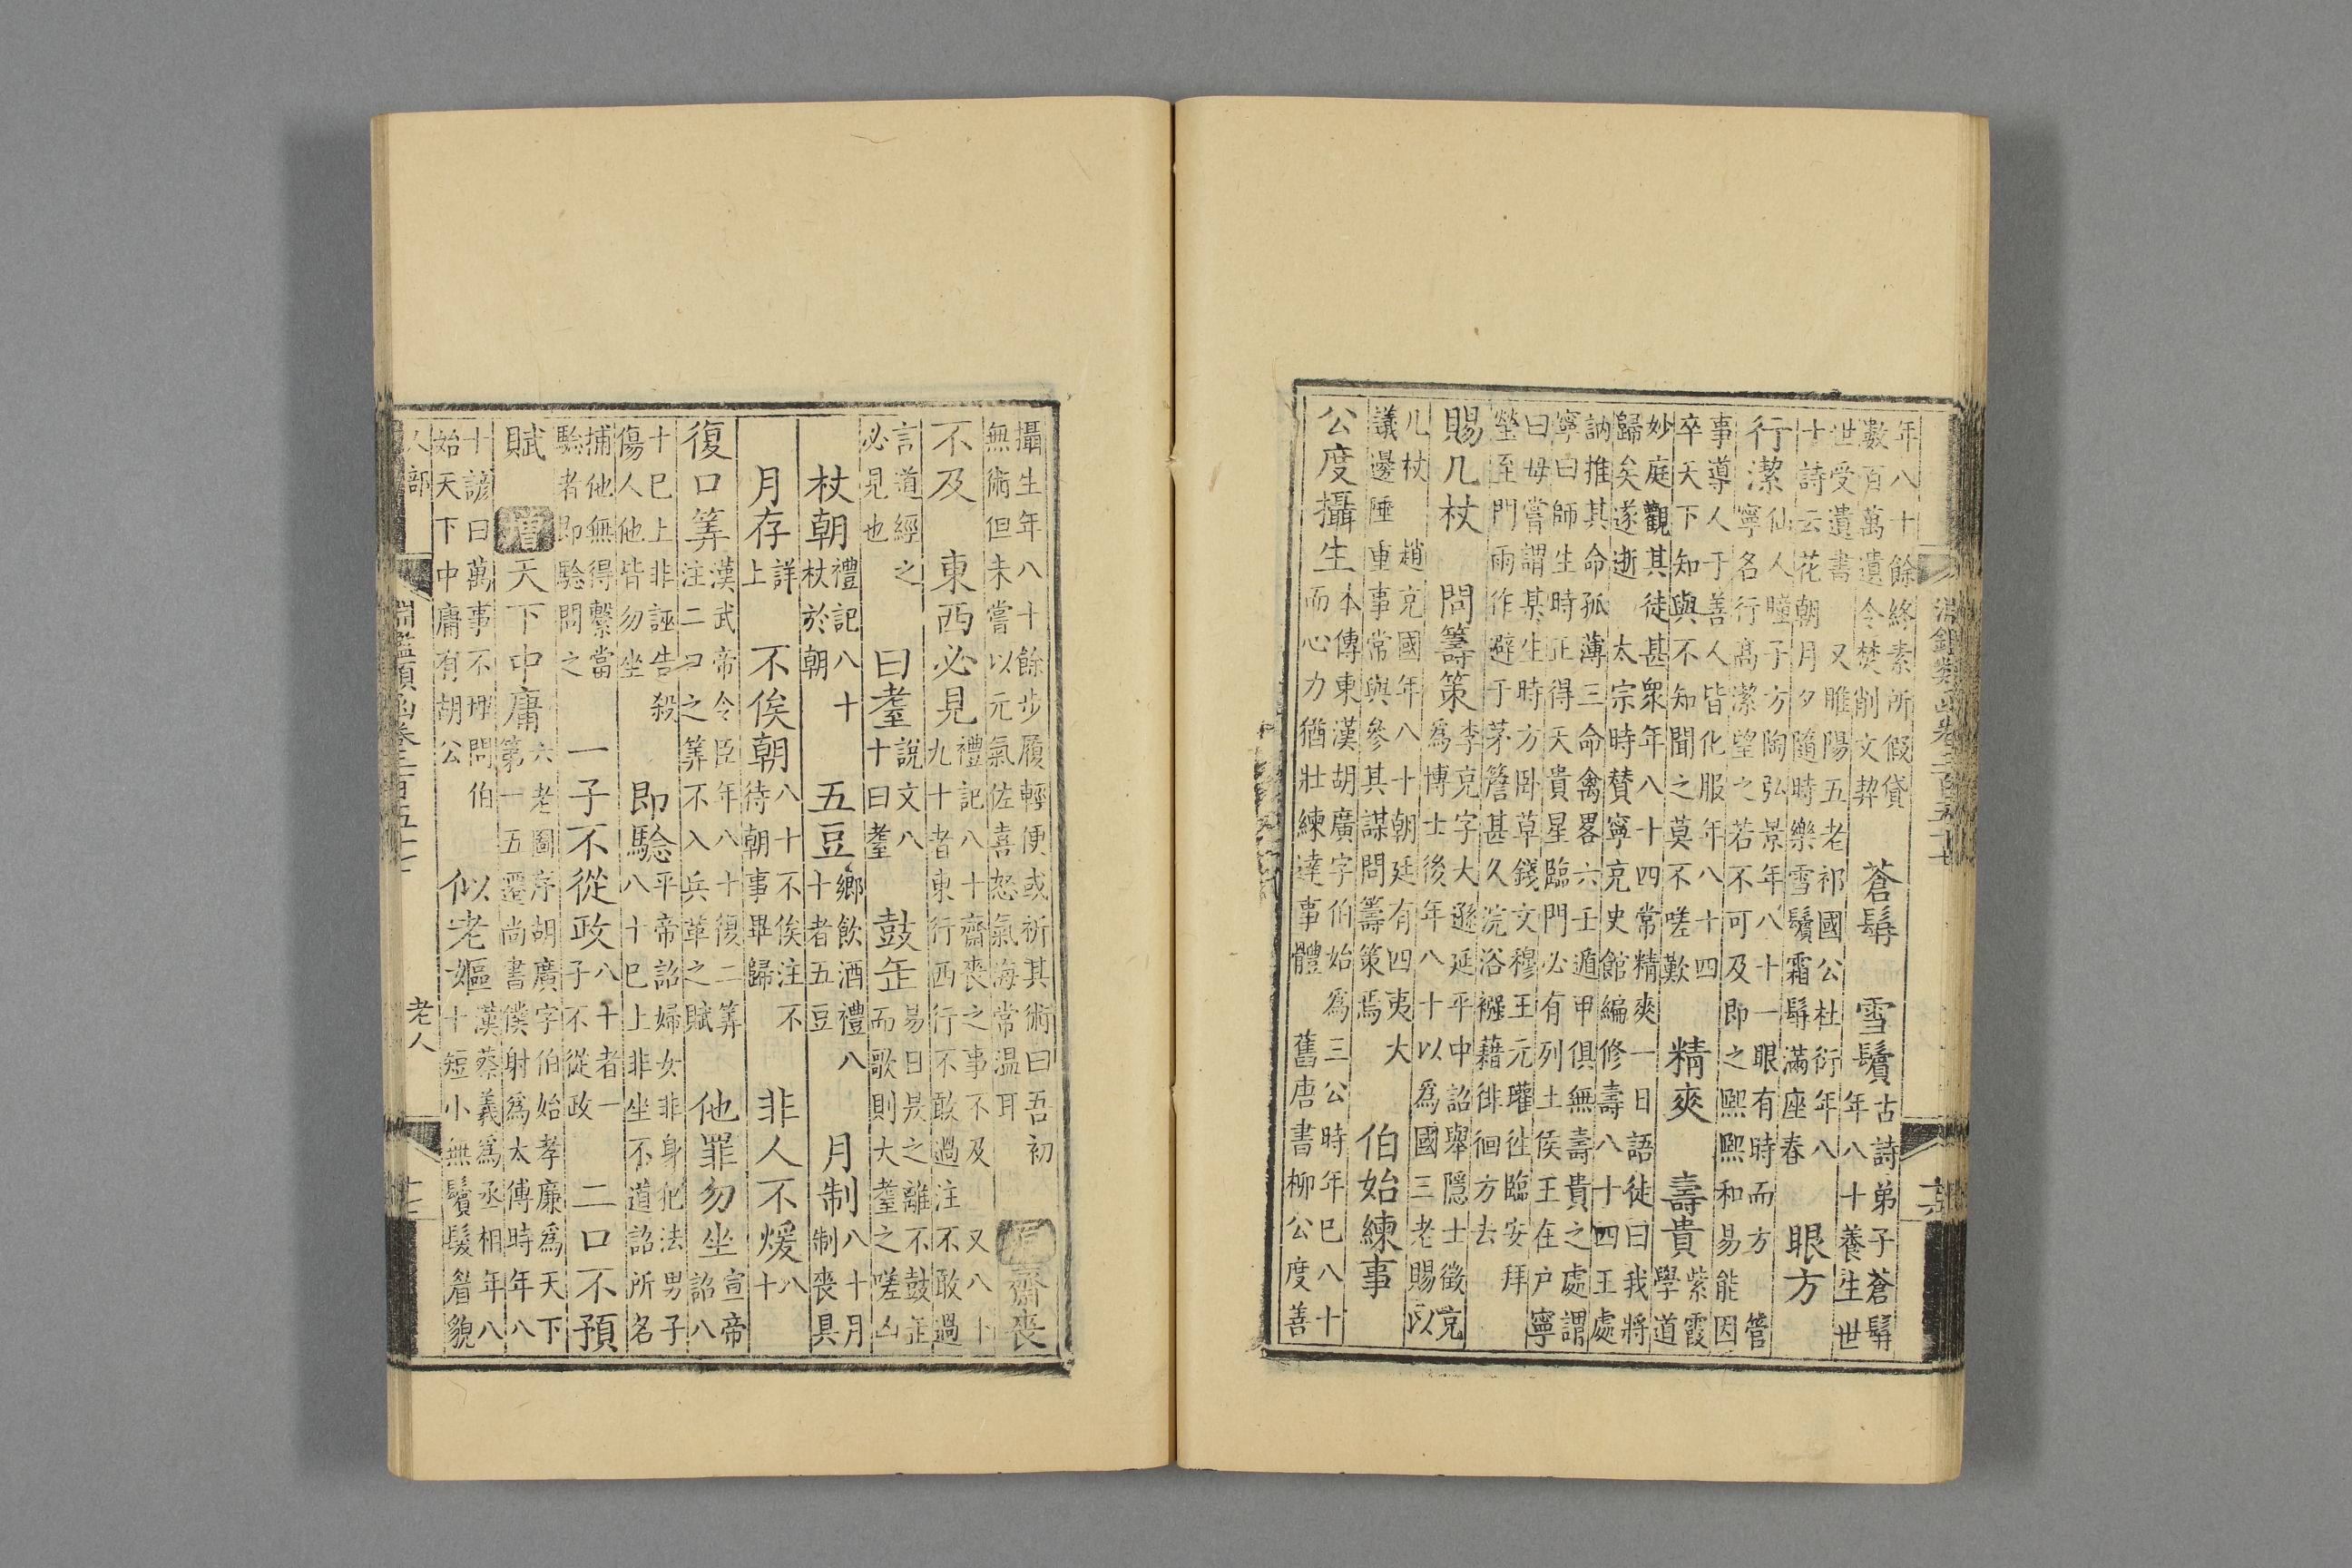 淵鑑類函卷三百五十七
年八十餘終素所假貸
數百萬遺令焚削文契 蒼髯 雪鬢 古詩弟子蒼髯
年八十養生世
世受遺書 又睢陽五老祁國公杜衍年八
十詩云花朝月夕隨時樂雪鬢霜髯滿座春 眼方
行潔 仙人瞳子方陶弘景年八十一眼有時而方 管
寧名行高潔望之若不可及即之熙熙和易能因
事導人于善人皆化服年八十四
卒天下知與不知聞之莫不嗟歎 精爽 壽貴 紫霞
學道
妙庭觀其徒甚衆年八十四常精爽一日語徒曰我將
歸矣遂逝 太宗時贊寧充史館編修壽八十四王處
訥推其命孤薄三命禽畧六壬遁甲俱無壽貴之處謂
寧曰師生時正得天貴星臨門必有列土侯王在户寧
曰母嘗謂某生時方卧草錢文穆王元瓘徃臨安拜
塋至門雨作避于茅簷甚久浣浴襁藉徘徊方去
賜几杖 問籌策 李克字大遜延平中詔舉隱士徵克
爲博士後年八十以爲國三老賜以
几杖 趙充國年八十朝廷有四夷大
議邊陲重事常與參其謀問籌策焉 伯始練事
公度攝生 本傳東漢胡廣字伯始爲三公時年已八十
而心力猶壯練達事體 舊唐書柳公度善
攝生年八十餘步履輕便或祈其術曰吾初
無術但未嘗以元氣佐喜怒氣海常温耳 原 齋喪
不及 東西必見 禮記八十齋喪之事不及 又八十
九十者東行西行不敢過注不敢過
言道經之
必見也 曰耋 說文八
十曰耋 鼓缶 易日昃之離不鼓缶
而歌則大耋之嗟凶
杖朝 禮記八十
杖於朝 五豆 鄉飲酒禮八
十者五豆 月制 八十月
制喪具
月存 詳
上 不俟朝 八十不俟注不
待朝事畢歸 非人不煖 八
十
復口筭 漢武帝令臣年八十復二筭
注二口之筭不入兵革之賦 他罪勿坐 宣帝
詔八
十已上非誣告殺
傷人他皆勿坐 即驗 平帝詔婦女非身犯法男子
八十已上非坐不道詔所名
捕他無得繫當
驗者即驗問之 一子不從政 八十者一
子不從政 二口不預
賦 增 天下中庸 六老圖序胡廣字伯始孝廉爲天下
第一五遷尚書僕射爲太傅時年八
十諺曰萬事不理問伯
始天下中庸有胡公 似老嫗 漢蔡義爲丞相年八
十短小無鬚髮眉貌
人部 淵鑑類函卷三百五十七 老人